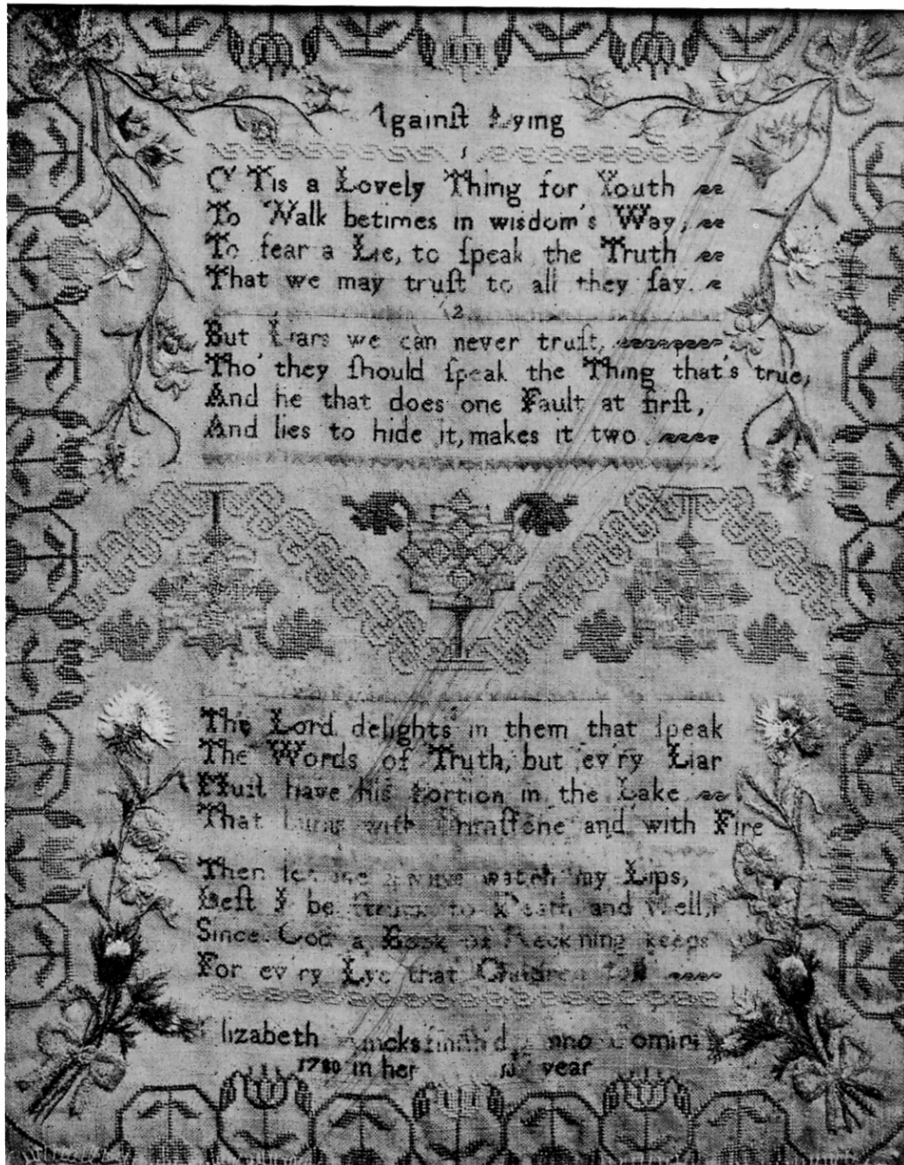 Againſt Lying
1
O 'Tis a Lovely Thing for Youth
To Walk betimes in wisdom's Way,
To fear a Lie, to ſpeak the Truth
That we may truſt to all they ſay.
2
But Liars we can never truſt,
Tho' they ſhould ſpeak the Thing that's true,
And he that does one Fault at firſt,
And lies to hide it, makes it two
The Lord delights in them that ſpeak
The Words of Truth, but ev'ry Liar
Muſt have his Portion in the Lake
That burns with Brimſtone and with Fire
Then let me always watch my Lips,
Leſt I be ſtruck to Death and Hell,
Since God a Book of Reck'ning keeps
For ev'ry Lye that Children tell
Elizabeth finiſh'd Anno Domini
1780 in her year